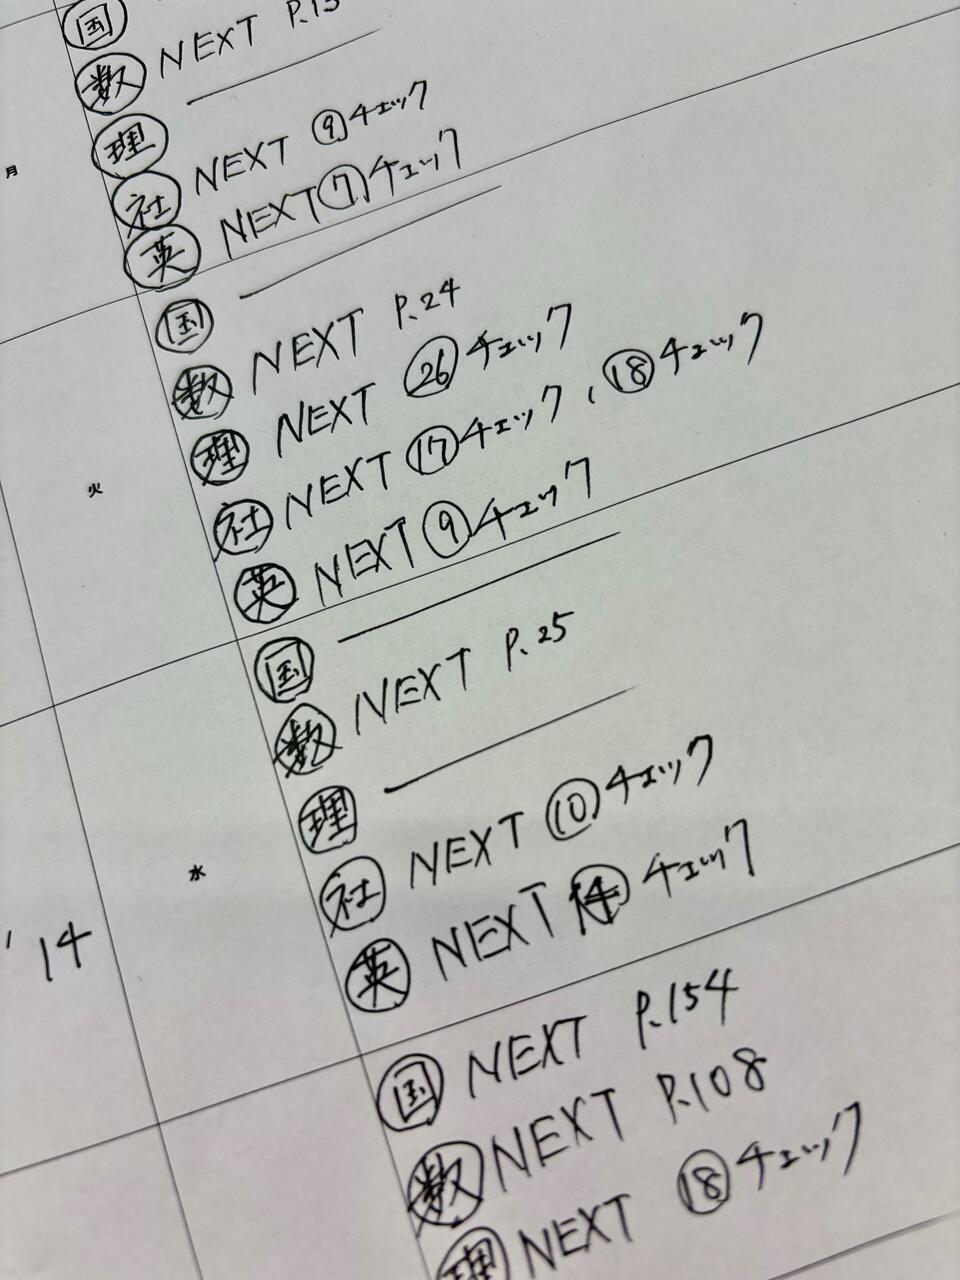 国
数 NEXT
理
月
社 NEXT ⑨チェック
英 NEXT ⑦チェック
国
数 NEXT P.24
理 NEXT ㉖チェック
火
社 NEXT ⑰チェック, ⑱チェック
英 NEXT ⑨チェック
国
数 NEXT P.25
理
水
社 NEXT ⑩チェック
英 NEXT チェック
14
国 NEXT P.154
数 NEXT P.108
理 NEXT ⑱チェック